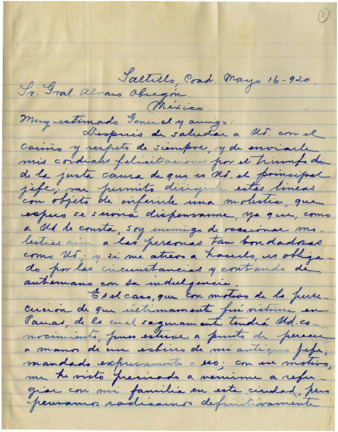 1
Saltillo, Coah. Mayo 16-920.
Sr. Gral. Alvaro Obregón.
México
Muy estimado General y amigo:
Después de saludar a Ud. con el
cariño y respeto de siempre, y de enviarle
mis cordiales felicitaciones por el triunfo
de la justa causa de que es Ud. el principal
jefe, me permito dirigirle estas líneas
con objeto de inferirle una molestia, que
espero se servirá dispensarme, ya que, como
a Ud. le consta, soy enemigo de ocasionar mo-
lestias a las personas tan bondadosas
como Ud., y si me atrevo a hacerlo, es obliga-
do por las circunstancias y contando de
antemano con su indulgencia.
Es el caso, que con motivo de la perse-
cución de que últimamente fuí víctima en
Parras, de la cual seguramente tendrá Ud. co-
nocimiento, pues estuve a punto de perecer
a manos de un esbirro de mi antiguo jefe,
mandado expresamente a eso, con ese motivo,
me he visto precisado a venirme a refu-
giar con mi familia en esta ciudad, pero
pensamos radicarnos definitivamente